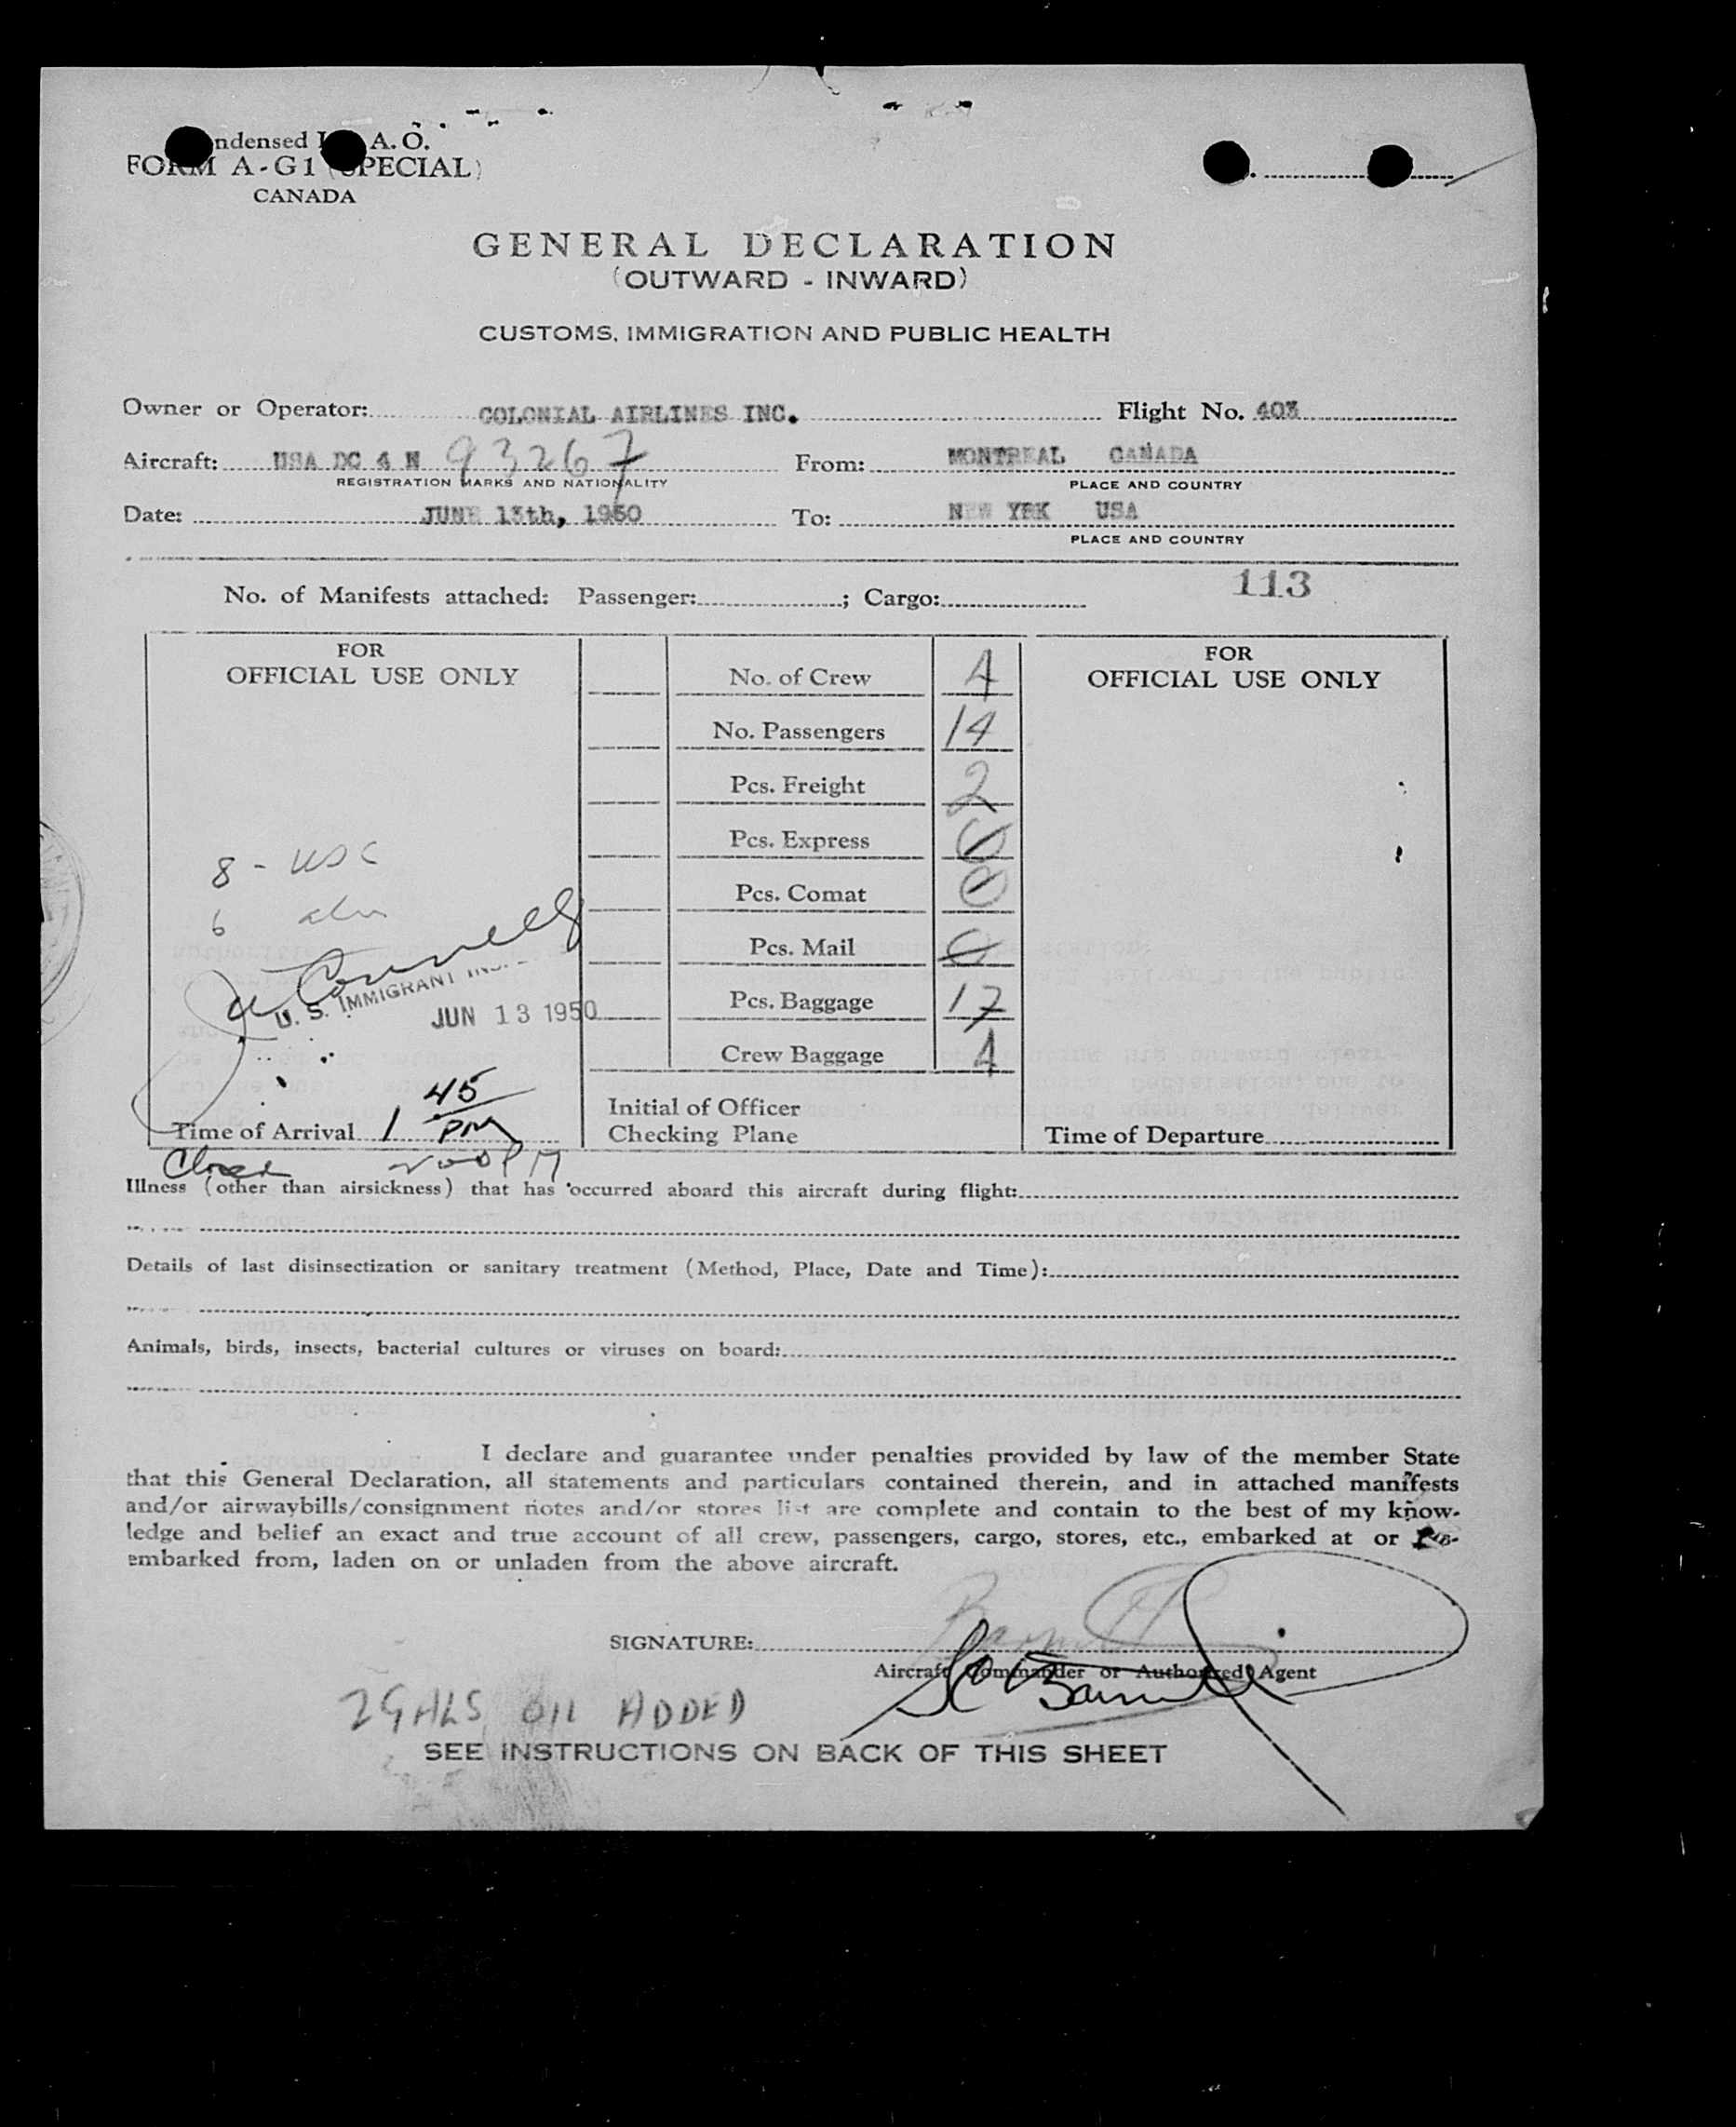 ndensed I A. O.
FORM A-G1 (SPECIAL)
CANADA
GENERAL DECLARATION
(OUTWARD - INWARD)
CUSTOMS, IMMIGRATION AND PUBLIC HEALTH
Owner or Operator: COLONIAL AIRLINES INC. Flight No. 403
Aircraft: USA DC 4 N 93267 From: MONTREAL CANADA
REGISTRATION MARKS AND NATIONALITY PLACE AND COUNTRY
Date: JUNE 13th, 1950 To: NEW YRK USA
PLACE AND COUNTRY
113
No. of Manifests attached: Passenger: ; Cargo:
FOR
OFFICIAL USE ONLY
8 - USC
6
U. S. IMMIGRANT
JUN 13 1950
Time of Arrival 1 45 PM
No. of Crew 4
No. Passengers 14
Pcs. Freight 2
Pcs. Express 0
Pcs. Comat 0
Pcs. Mail 0
Pcs. Baggage 17
Crew Baggage 4
Initial of Officer
Checking Plane
FOR
OFFICIAL USE ONLY
Time of Departure
Closed 2:00 PM
Illness (other than airsickness) that has occurred aboard this aircraft during flight:
Details of last disinsectization or sanitary treatment (Method, Place, Date and Time):
Animals, birds, insects, bacterial cultures or viruses on board:
I declare and guarantee under penalties provided by law of the member State
that this General Declaration, all statements and particulars contained therein, and in attached manifests
and/or airwaybills/consignment notes and/or stores list are complete and contain to the best of my know-
ledge and belief an exact and true account of all crew, passengers, cargo, stores, etc., embarked at or
embarked from, laden on or unladen from the above aircraft.
SIGNATURE:
Aircraft Commander or Authorized Agent
2 GALS OIL ADDED
SEE INSTRUCTIONS ON BACK OF THIS SHEET